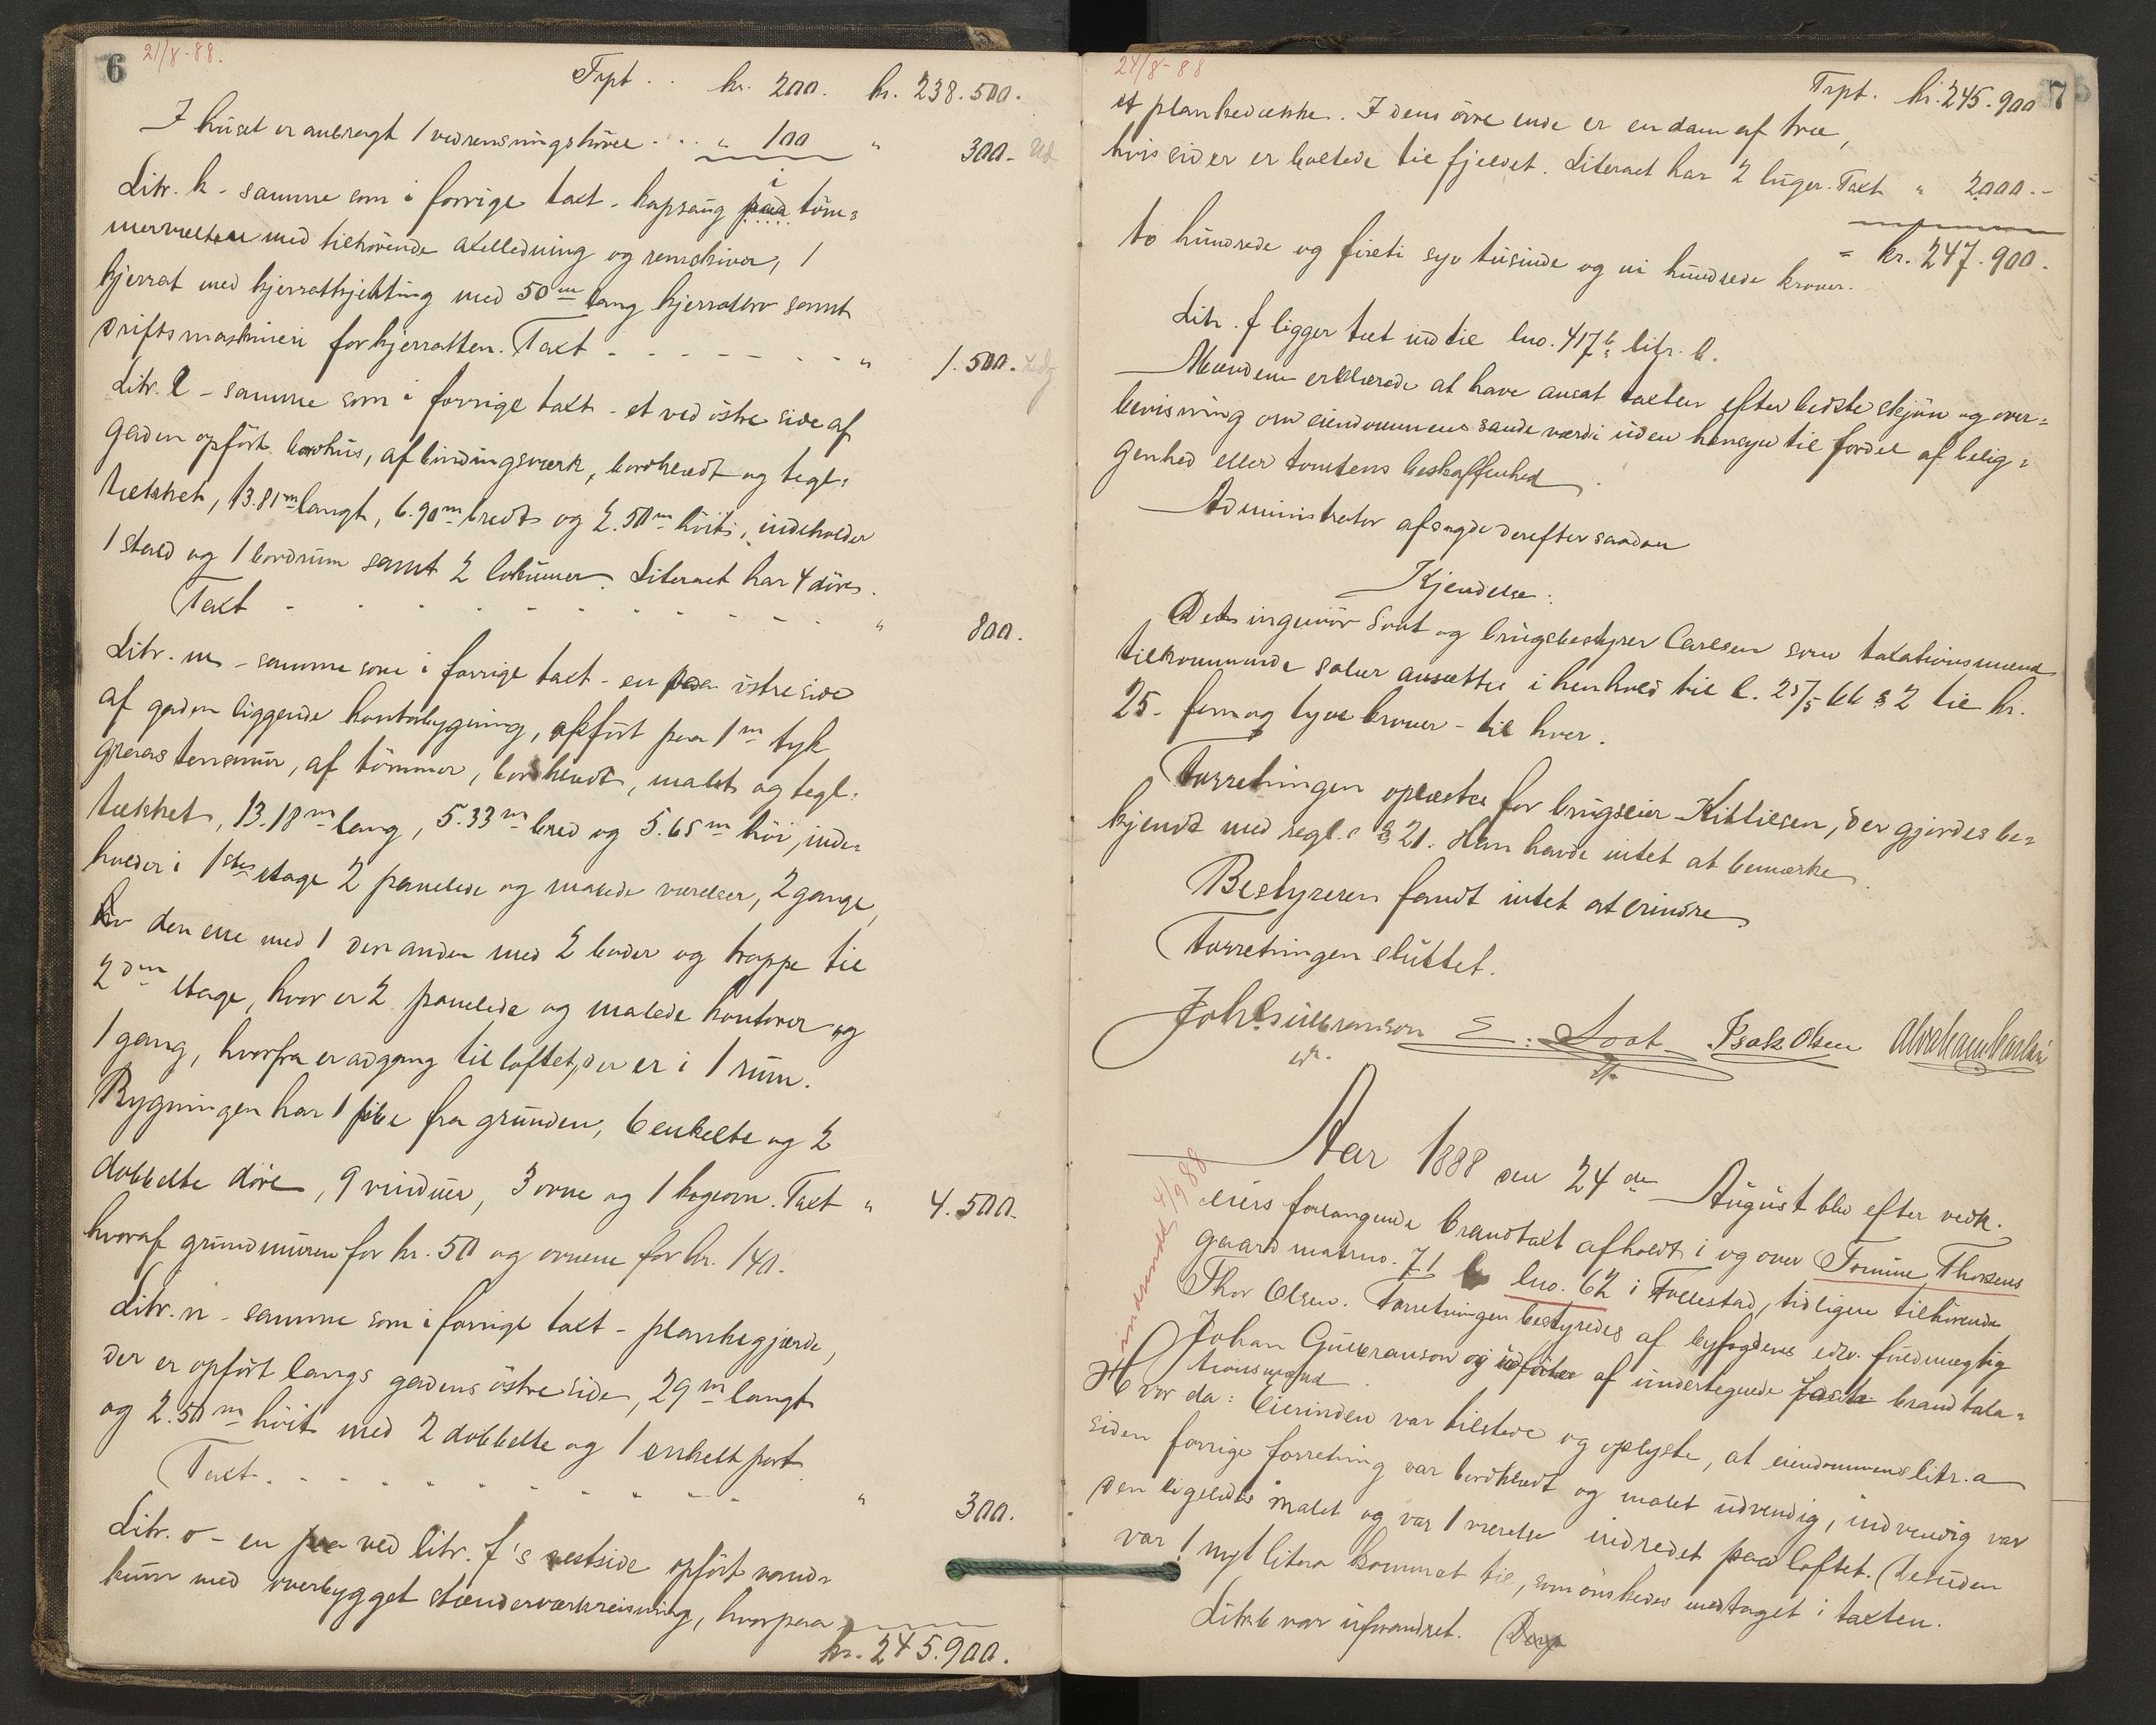 6
21/8-88.
Trpt. . kr. 200. kr. 238.500.
I huset er anbragt 1 vedrensningshövel . . . " 100 " 300.-
Litr. k - samme som i forrige taxt - kapsaug i töm=
mervelten med tilhörende axelledning og remskiver, 1
kjerrat med kjerratkjetting med 50 m lang kjerratbro samt
driftsmaskineri for kjerratten. Taxt - - - - - - - " 1.500.
Litr. l - samme som i forrige taxt - et ved östre side af
gaden opfört bordhus, af bindingsværk, bordklædt og tegl=
tækket, 13.81 m langt, 6.90 m bredt og 2.50 m höit, indeholder
1 stald og 1 bordrum samt 2 lokummer. Literaet har 4 döre.
Taxt - - - - - - - - - - " 800.
Litr. m - samme som i forrige taxt - en paa östre side
af gaden liggende kontorbygning, opfört paa 1 m tyk
graastensmur, af tömmer, bordklædt, malet og tegl=
tækket, 13.18 m lang, 5.33 m bred og 5.65 m höi, inde=
holder i 1ste etage 2 panelede og malede værelser, 2 gange,
hv den ene med 1 den anden med 2 boder og trappe til
2den etage, hvor er 2 panelede og malede kontorer og
1 gang, hvorfra er adgang til loftet, der er i 1 rum.
Bygningen har 1 pibe fra grunden, 6 enkelte og 2
dobbelte döre, 9 vinduer, 3 ovne og 1 kogeovn. Taxt " 4.500.
hvoraf grundmuren for kr. 50 og ovnene for kr. 140.
Litr. n - samme som i forrige taxt - plankegjærde,
der er opfört langs gadens östre side, 29 m langt
og 2.50 m höit med 2 dobbelte og 1 enkelt port.
Taxt. - - - - - - - - - " 300.
Litr. o - en paa ved litr. f's vestside opfört vand=
kum med overbygget stænderværksreisning, hvorpaa
kr. 245.900.
7
24/8-88
Trpt. kr. 245.900
et plankedække. I dens övre ende er en dam af træ,
hvis sider er boltede til fjeldet. Literaet har 2 luger. Taxt " 2000.-
= kr. 247.900.
to hundrede og firti syv tusinde og ni hundrede kroner.
Litr. f ligger tæt ind til lno. 417 b litr. b.
Mændene erklærede at have ansat taxten efter bedste skjön og over=
bevisning om eiendommens sande værdi uden hensyn til fordel af belig=
genhed eller tomtens beskaffenhed.
Administrator afsagde derefter saadan
Kjendelse:
Det ingeniör Soot og brugsbestyrer Carlsen som taxationsmænd
tilkommende salær ansættes i henhold til l. 25/5 66 § 2 til kr.
25. fem og tyve kroner - til hver.
Forretningen oplæstes for brugseier Kittilsen, der gjordes be=
kjendt med regl.s § 21. Han havde intet at bemærke.
Bestyreren fandt intet at erindre.
Forretningen sluttet.
Joh. Gulbranson E. Soot Isak Olsen Abraham Carlsen
indsendt 4/9 88
Aar 1888 den 24de August blev efter vedk.
eiers forlangende brandtaxt afholdt i og over Tomine Thorsens
gaard matrno. 71 lno. 62 i Follestad, tidligere tilhörende
Thor Olsen. Forretningen bestyredes af byfogdens edsv. fuldmægtig
Johan Gulbranson og udförtes af undertegnede faste brandtaxa=
tionsmænd
Hvor da: Eierinden var tilstede og oplyste, at eiendommens litr. a
siden forrige forretning var bordklædt og malet udvendig, indvendig var
den ligeledes malet og var 1 værelse indredet paa loftet. Desuden
var 1 nyt litera kommet til, som önskedes medtaget i taxten.
Litr. b var uforandret.